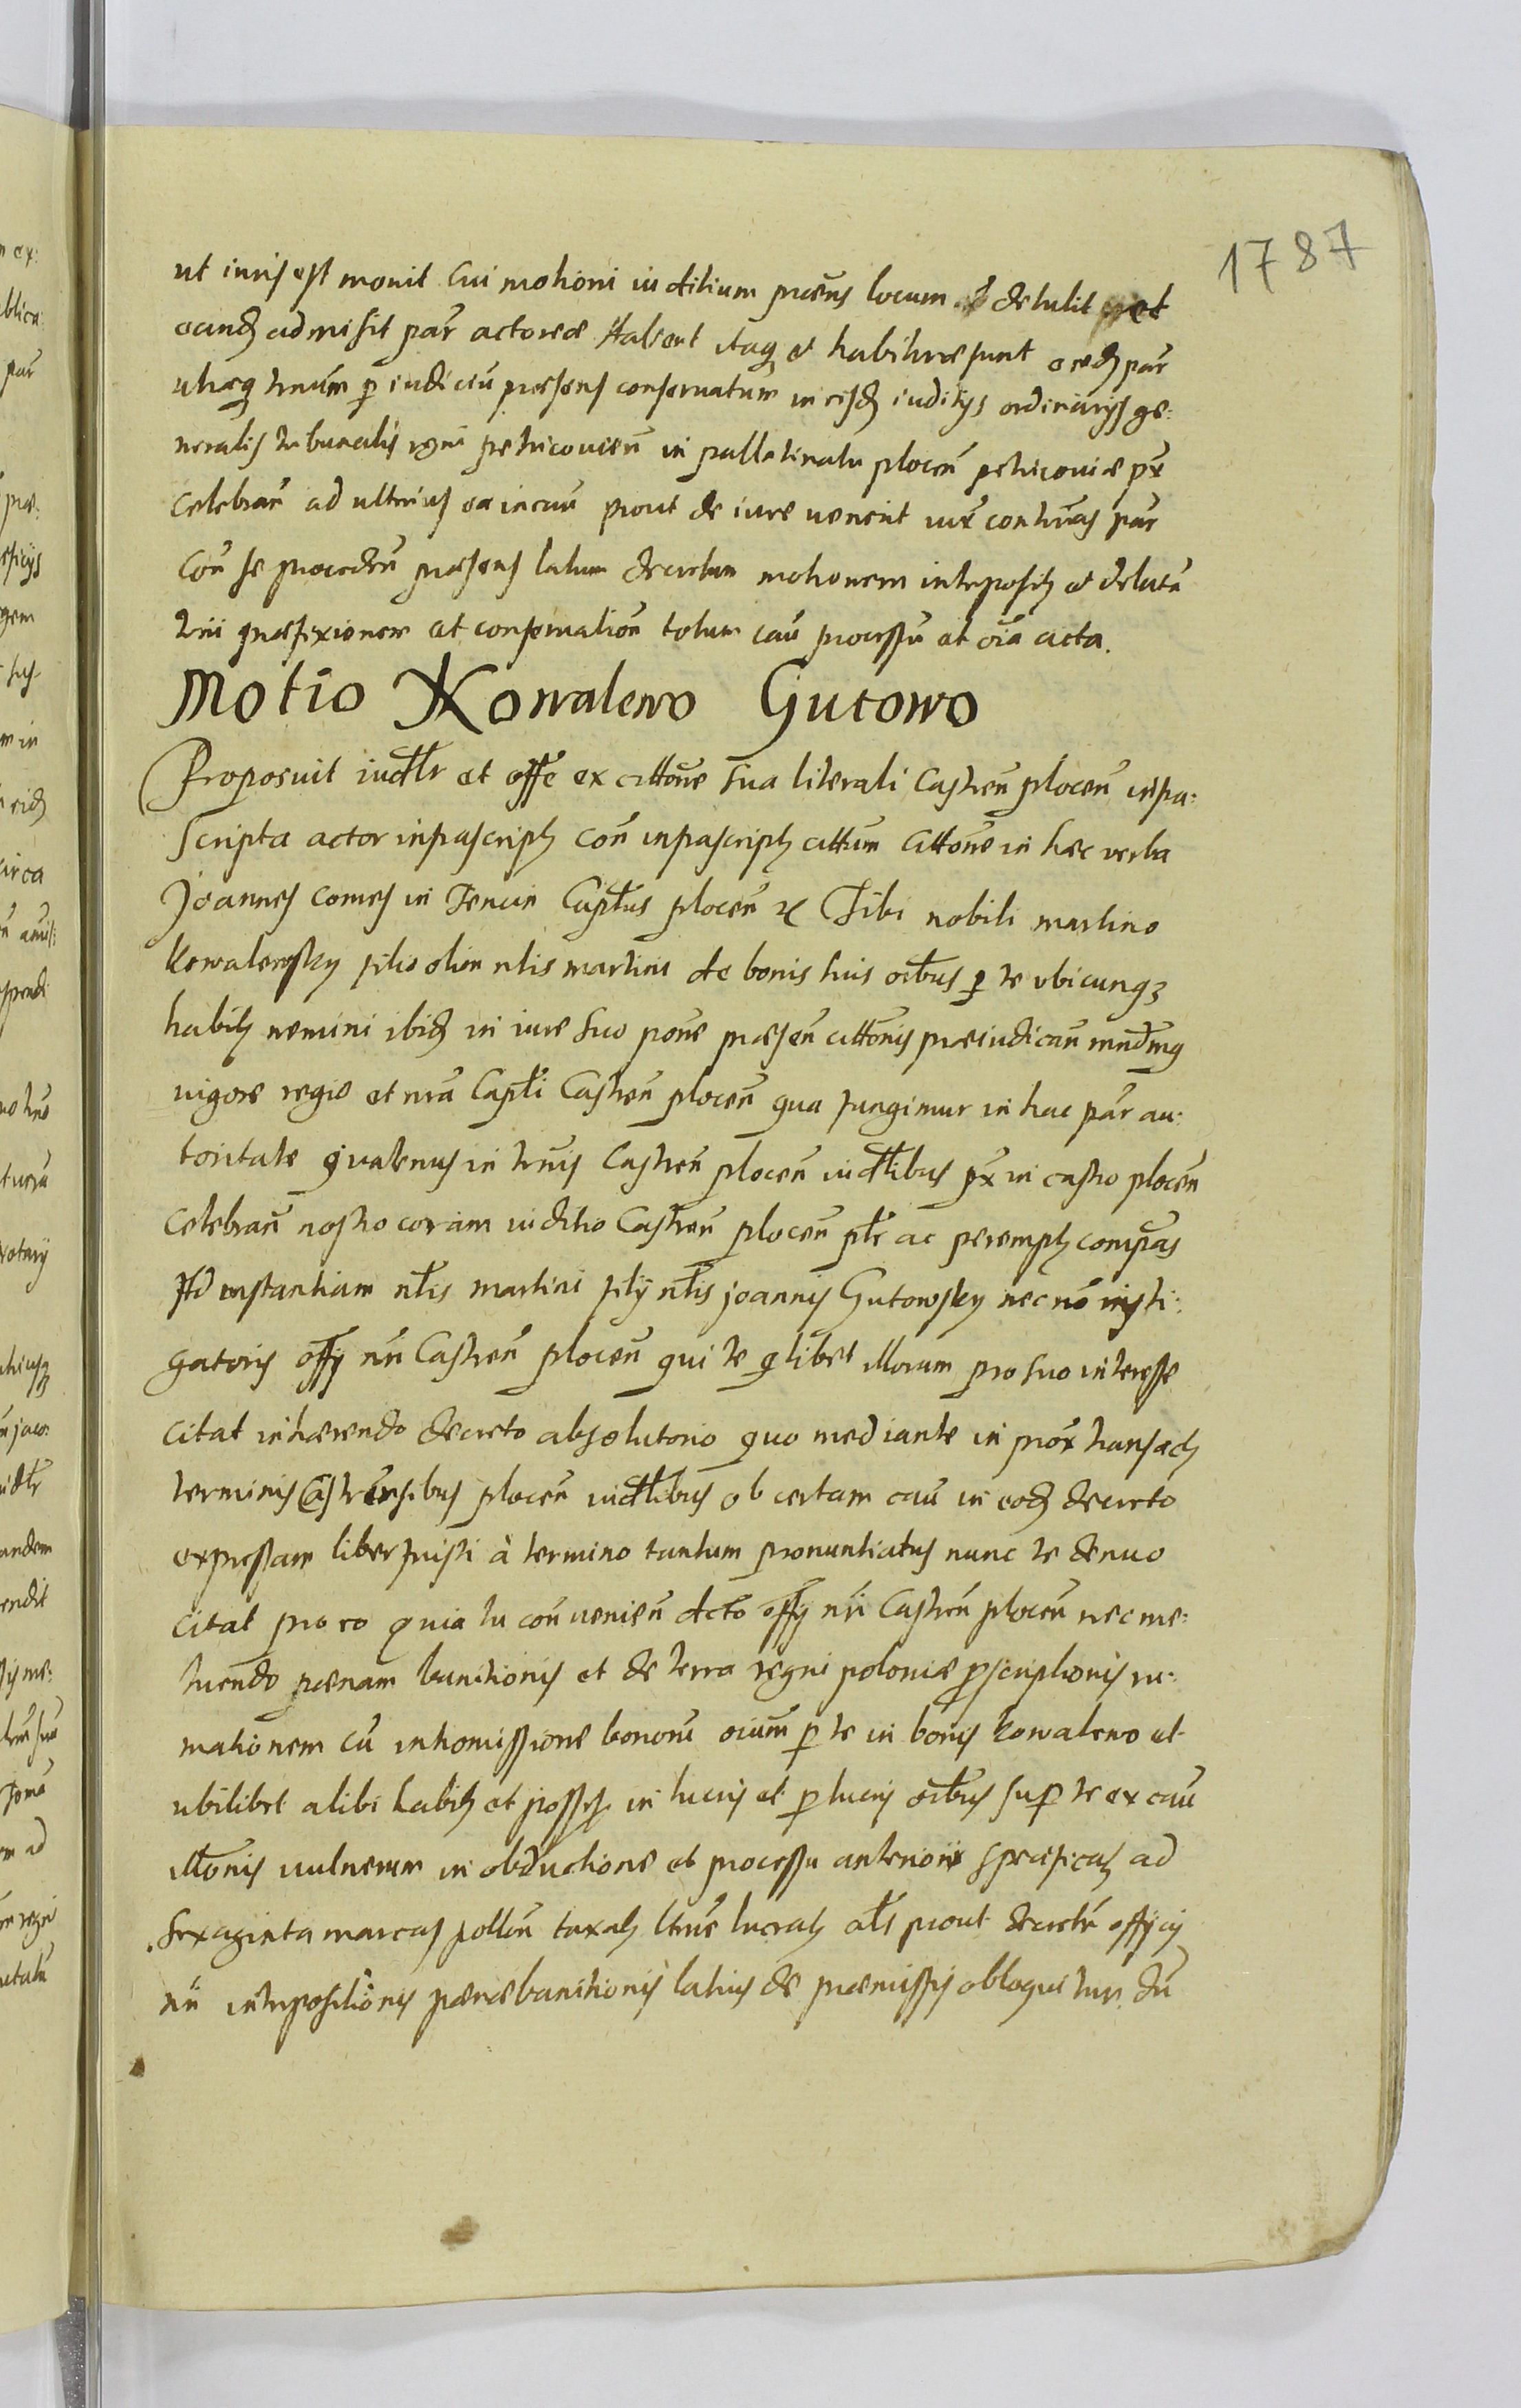 1787
ut iuris est mouit Cui motioni iuditium præns locum detulit et
eandē admisit par actoreæ Habent itaq et habituræ sunt eædē par
utræq trnum p iudiciū præsens conseruatum in eisdē iuditijs ordinarijs ge:
neralis tribunalis regni petricouien in pallatinatu plocen petricouiæ px
celebran ad ulterius ea in cau prout de iure uenerit iux contrias par
Con se proceden præsens latum decretum motionem interposit et delatā
trni præfixionem et conseruation totum cau processū et oia acta.
Motio Kowalewo Gutowo
Proposuit iudtlr et offe ex cittone sua literali Castren plocen infra:
scripta actor infrascript con infrascript cittum Cittone in hæc verba
Joannes comes in Tencin Captus plocen Tibi nobili martino
Kowalewsky filio olim nlis martini de bonis tuis oibus p te vbicunq
habit nemini ibid in iure suo pone præsen cittonis præiudican mndmq
uigore regio et nra Capti Castren plocen qua fungimur in hac par au:
toritate quatenus in trnis Castren plocen iudtlibus px in castro plocen
celebran nostro coram iuditio Castren plocen ptr ac perempt compas
Ad instantiam nlis martini filij nlis joannis Gutowsky nec nō insti:
gatoris offy nri Castren plocen qui te qlibet illorum pro suo interesse
Citat inhærendo decreto absolutorio quo mediante in prox transact
terminis Castrensibus plocen iudtlibus ob certam cau in eod decreto
expressam liber fuisti à termino tantum pronuntiatus nunc te denuo
citat pro eo quia tu conuenien dcto offy nri Castren plocen nec me:
tuendo pœnam banitionis et de terra regni poloniæ pscriptionis ru:
mationem cū intromissione bonorū oium p te in bonis Kowalewo et
ubilibet alibi habit et possess in lucris et p lucris oibus sup te ex cau
illonis uulnerum in obductione et processu anteriori specificat ad
sexaginta marcas pollon taxat trne lucrat als prout decretū officij
nri interpositionis pœnæ banitionis latius de præmissis obloquitur du